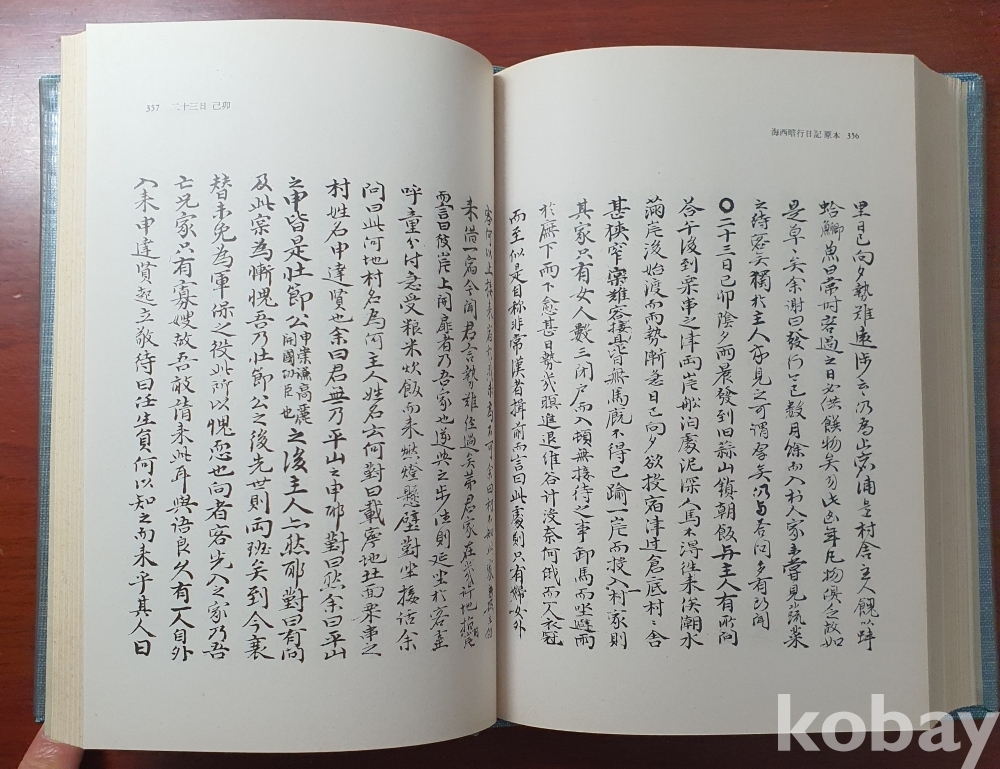 海西暗行日記 原本 356
里日已向夕勢難遠涉云乃爲止宿浦邊村舍主人饋以
蛤鯽魚曰常時客過之日必供饌物矣
是草草矣余謝曰發行已數月餘而入於人家主嘗見蔬菜
之待客矣獨於主人家見之可謂厚矣仍与答問多有所聞
二十三日己卯陰夕雨晨發到旧蒜山鎭朝飯与主人有所問
答午後到栗串之津兩岸船泊處泥深人馬不得往來俟潮水
滿岸後始渡而雨勢漸急日已向夕欲投宿津邊倉底村村舍
甚狹窄實難容接且皆無馬廐不得已踰一岸而投入一村家則
其家只有女人數三閉戶而入頓無接待之事卸馬而坐避雨
於廐下雨下愈甚日勢幾暝進退維谷計沒奈何俄而一人衣冠
而至似是自称非常漢者揖前而言曰此處則只有婦女外
357 二十三日 己卯
來借一宿今聞君言勢難經過矣第君家在幾許地
而言曰彼岸上闹扉者乃吾家也遂與之步往則延坐於客室
呼童分付急受粮米炊飯而來燃燈懸壁對坐接話余
問曰此何地村名爲何主人姓名云何對曰載寧地社面栗串之
村姓名申達賢也余曰君無乃平山之申耶對曰然余曰平山
之申皆是壯節公申崇謙高麗開國功臣也之後主人亦然耶對曰有問
及此宗爲慚愧吾乃壯節公之後先世則兩班矣到今衰
替未免爲軍保之役此所以愧恧也向者客先入之家乃吾
亡兄家只有寡嫂故吾敢請來此耳與語良久有一人自外
入來申達賢起立敬待曰任生員何以知之而來乎其人曰
kobay